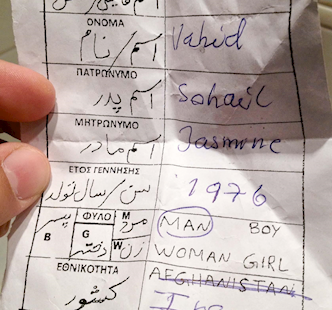 ΟΝΟΜΑ
اسم / نام Vahid
ΠΑΤΡΩΝΥΜΟ
اسم پدر Sohail
ΜΗΤΡΩΝΥΜΟ
اسم مادر Jasmine
ΕΤΟΣ ΓΕΝΝΗΣΗΣ
سن / سال تولد 1976
پسر ΦΥΛΟ M مرد MAN BOY
B G دختر W زن WOMAN GIRL
ΕΘΝΙΚΟΤΗΤΑ AFGHANISTAN
کشور